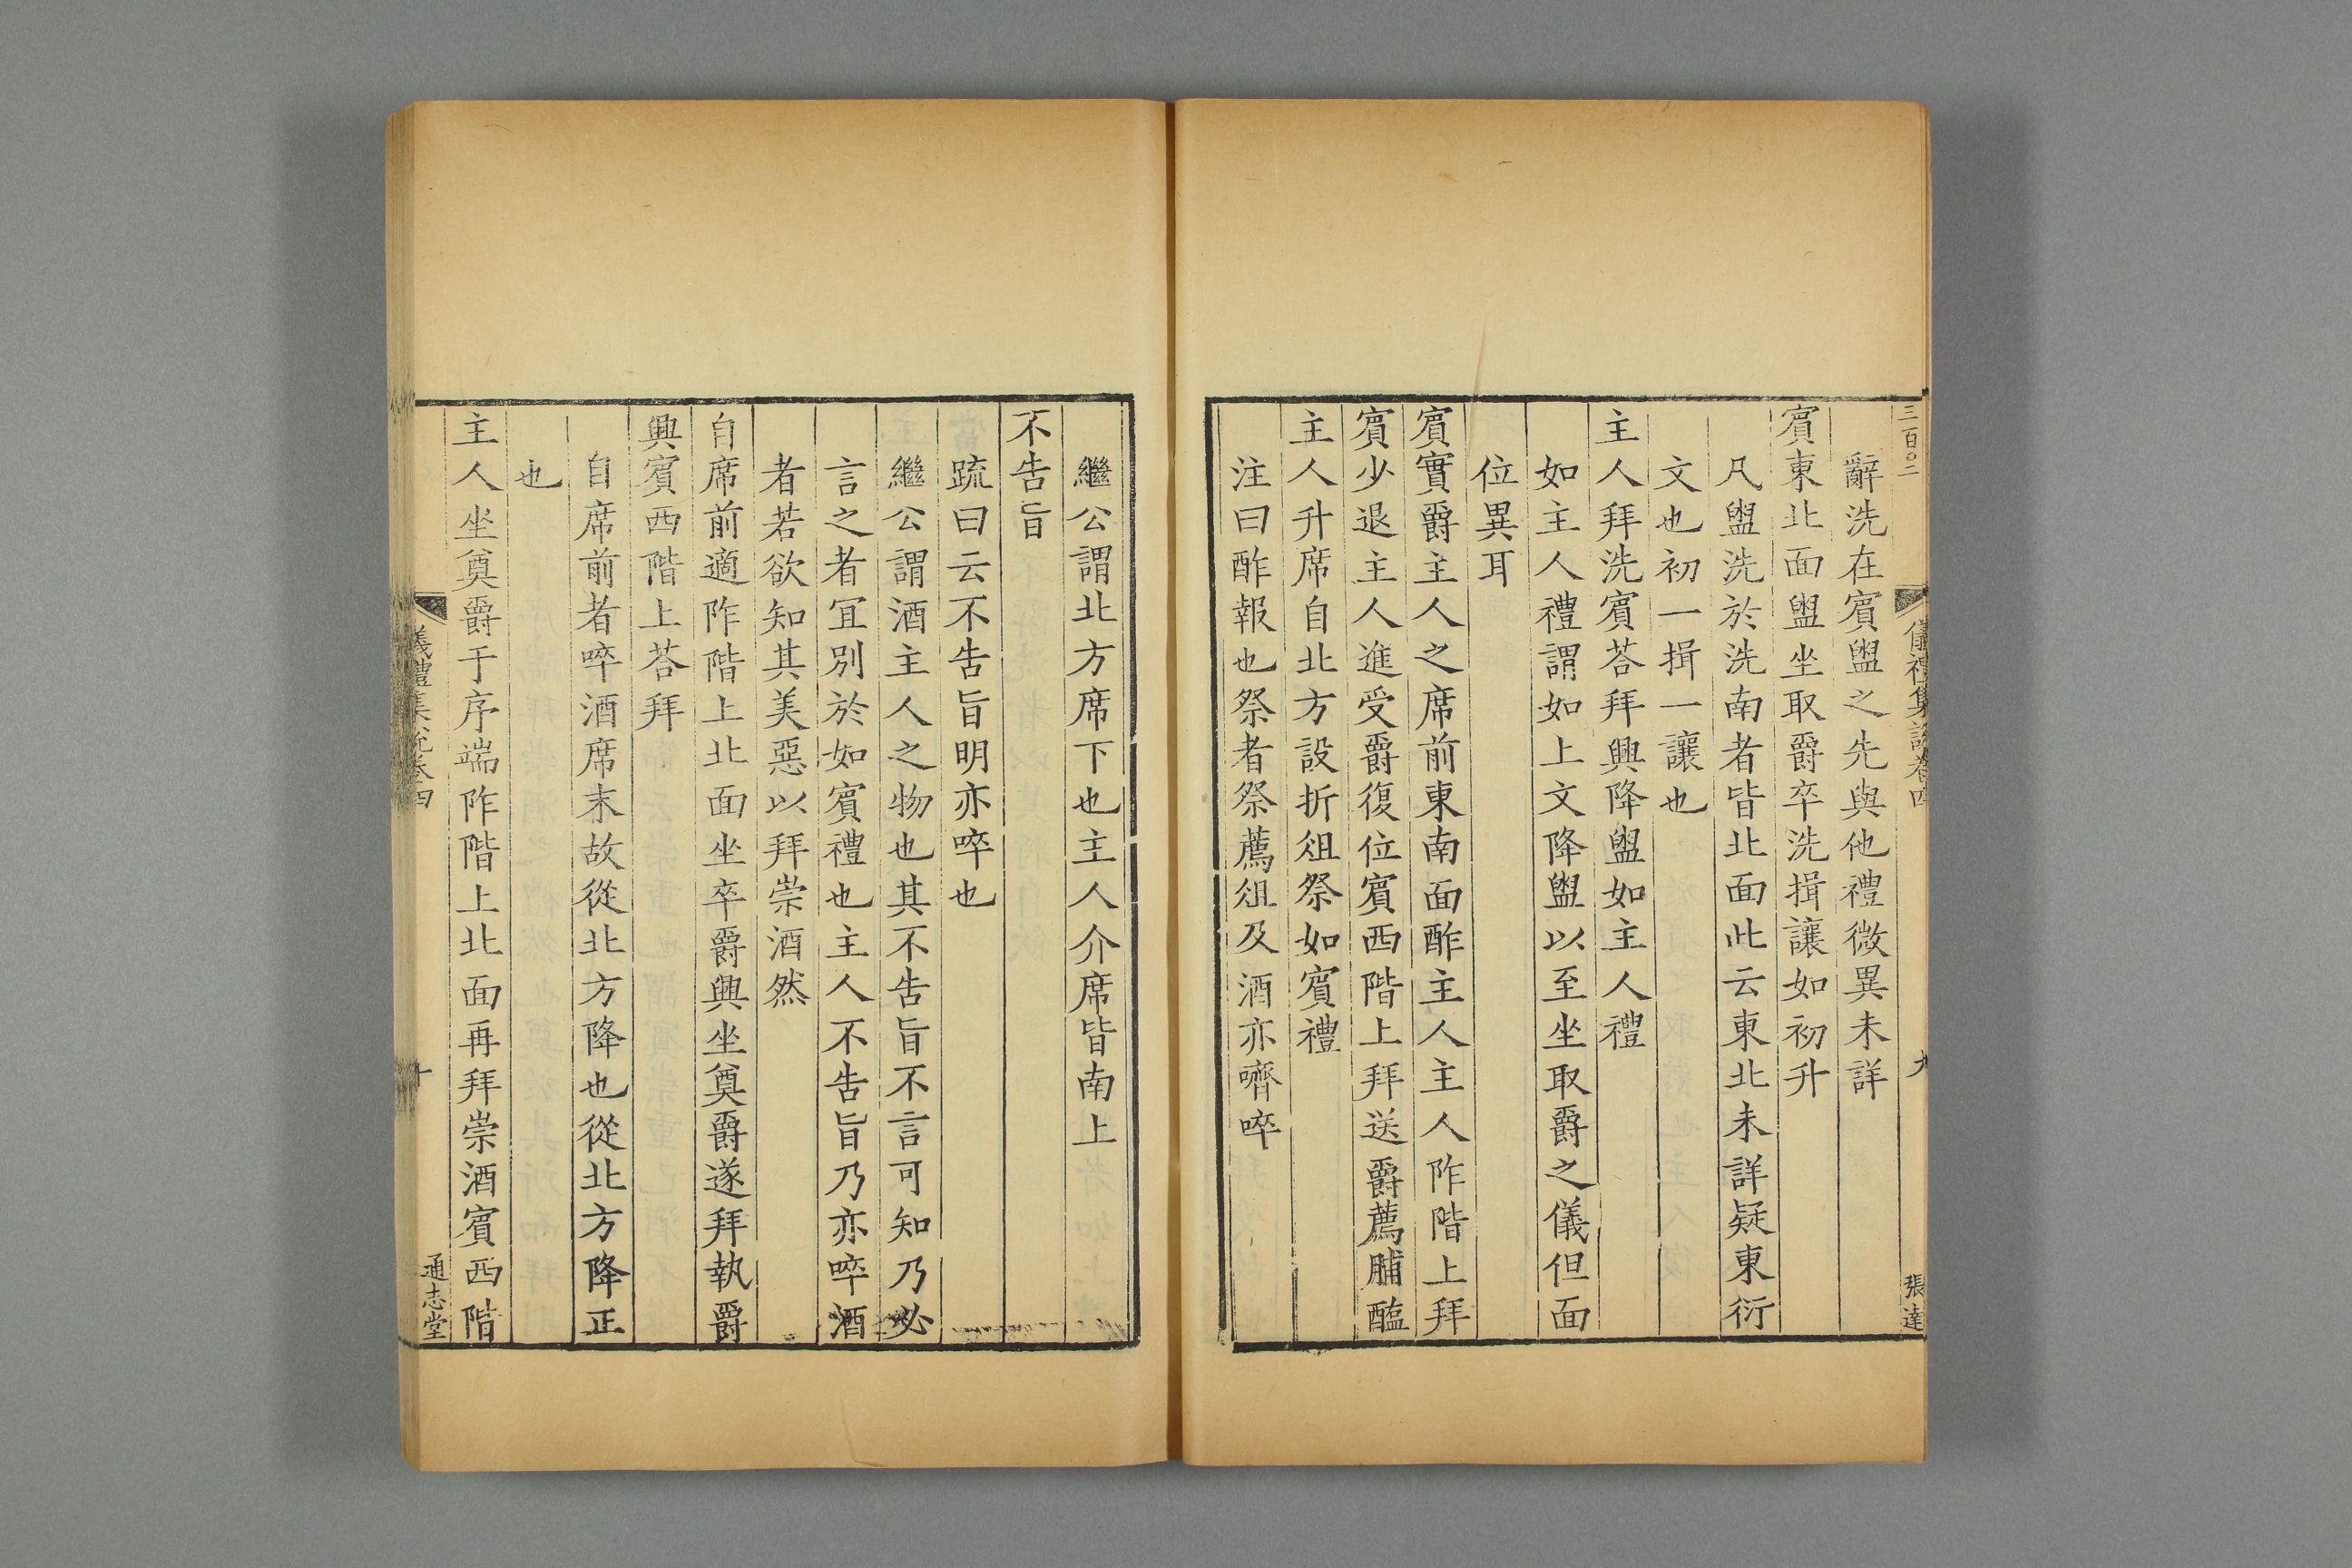 三百〇二
儀禮集說卷四
九
張達
辭洗在賓盥之先與他禮微異未詳
賓東北面盥坐取爵卒洗揖讓如初升
凡盥洗於洗南者皆北面此云東北未詳疑東衍
文也初一揖一讓也
主人拜洗賓荅拜興降盥如主人禮
如主人禮謂如上文降盥以至坐取爵之儀但面
位異耳
賓實爵主人之席前東南面酢主人主人阼階上拜
賓少退主人進受爵復位賓西階上拜送爵薦脯醢
主人升席自北方設折俎祭如賓禮
注曰酢報也祭者祭薦俎及酒亦嚌啐
繼公謂北方席下也主人介席皆南上
不告旨
疏曰云不告旨明亦啐也
繼公謂酒主人之物也其不告旨不言可知乃必
言之者冝別於如賓禮也主人不告旨乃亦啐酒
者若欲知其美惡以拜崇酒然
自席前適阼階上北面坐卒爵興坐奠爵遂拜執爵
興賓西階上荅拜
自席前者啐酒席末故從北方降也從北方降正
也
主人坐奠爵于序端阼階上北面再拜崇酒賓西階
儀禮集說卷四
十
通志堂